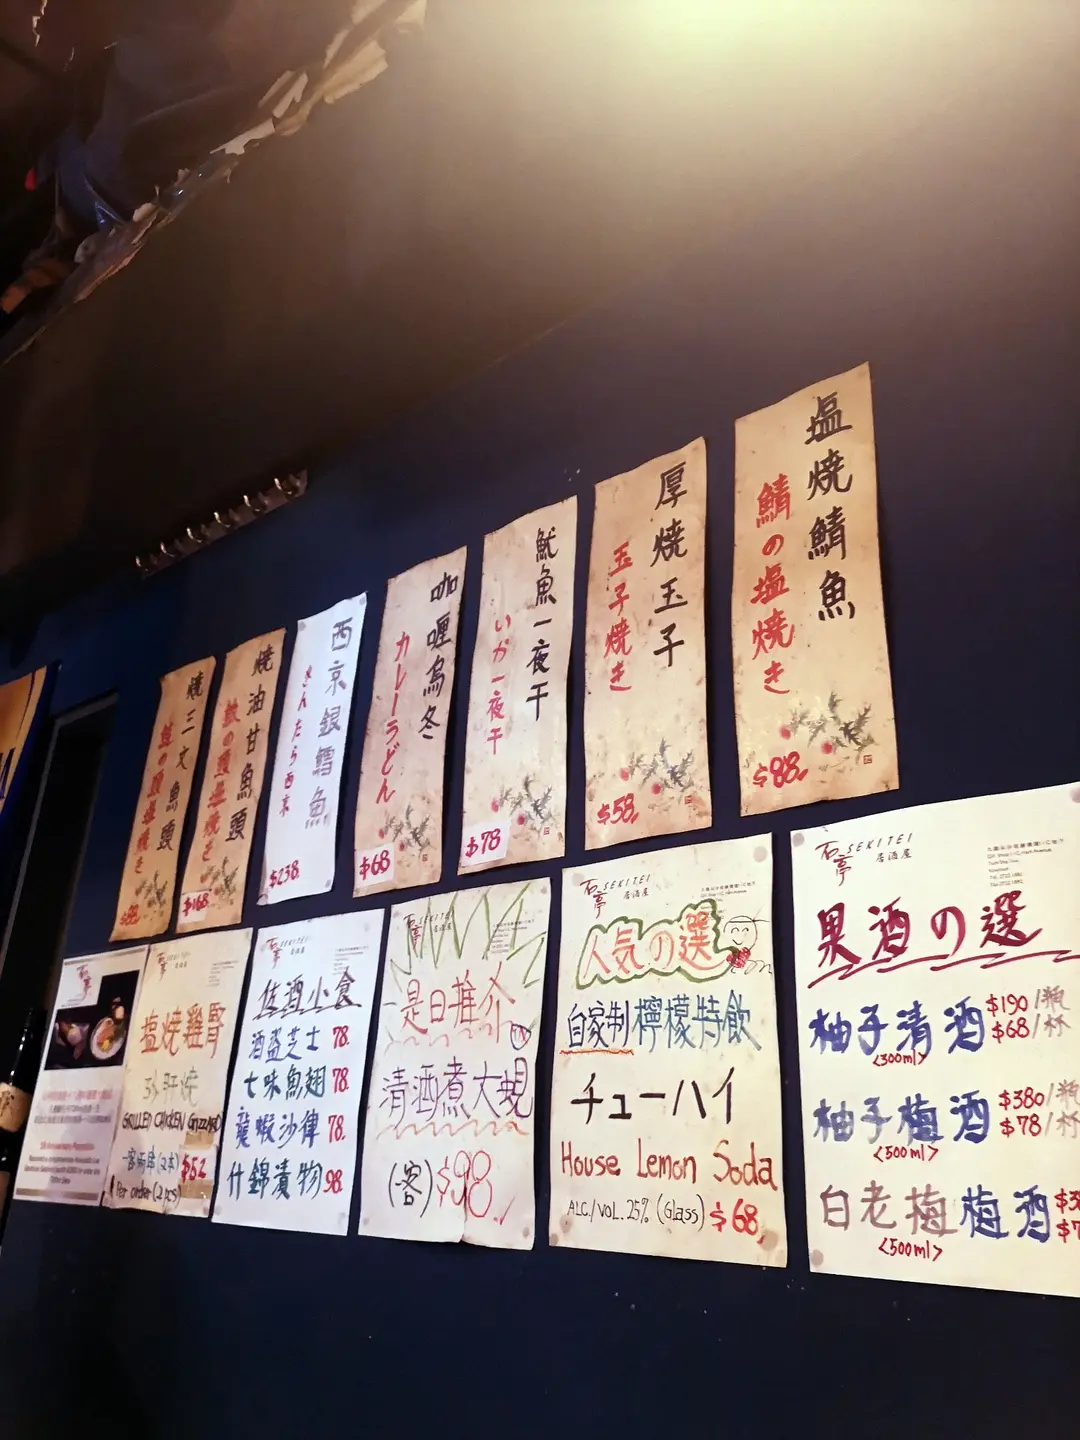 塩焼鯖魚
鯖の塩焼き
$88
厚焼玉子
玉子焼き
$58
魷魚一夜干
いか一夜干
$78
咖喱烏冬
カレーうどん
$68
西京銀鱈魚
ぎんだら西京
$238
燒油甘魚頭
$168
燒三文魚頭
$88
塩焼雞腎
砂肝焼
GRILLED CHICKEN GIZZARD
一客兩串(2本) $52
Per order (2 pcs)
石亭 SEKITEI
居酒屋
佐酒小食
酒盗芝士 78.
七味魚翅 78.
龍蝦沙律 78.
什錦漬物 98.
石亭 SEKITEI
居酒屋
是日推介
清酒煮大蜆
(客) $98
石亭 SEKITEI
居酒屋
人気の選
自家制檸檬特飲
チューハイ
House Lemon Soda
ALC./VOL. 25% (Glass) $68
石亭 SEKITEI
居酒屋
果酒の選
柚子清酒 $190/瓶
<300ml> $68/杯
柚子梅酒 $380/瓶
<500ml> $78/杯
白老梅梅酒
<500ml>